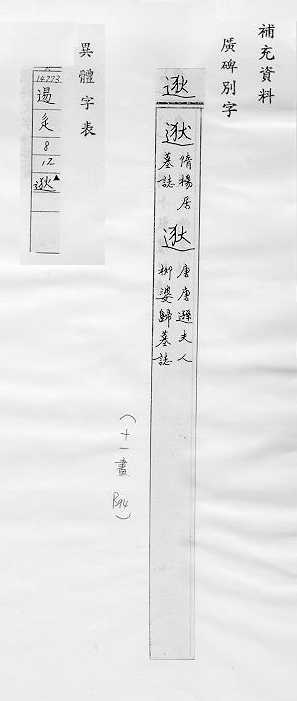 補充資料
廣碑別字
逖
逖
隋楊居
墓誌
逖
唐唐遜夫人
柳婆歸墓誌
(十一畫 P.94)
異體字表
14773
逷
辵
8
12
逖▲